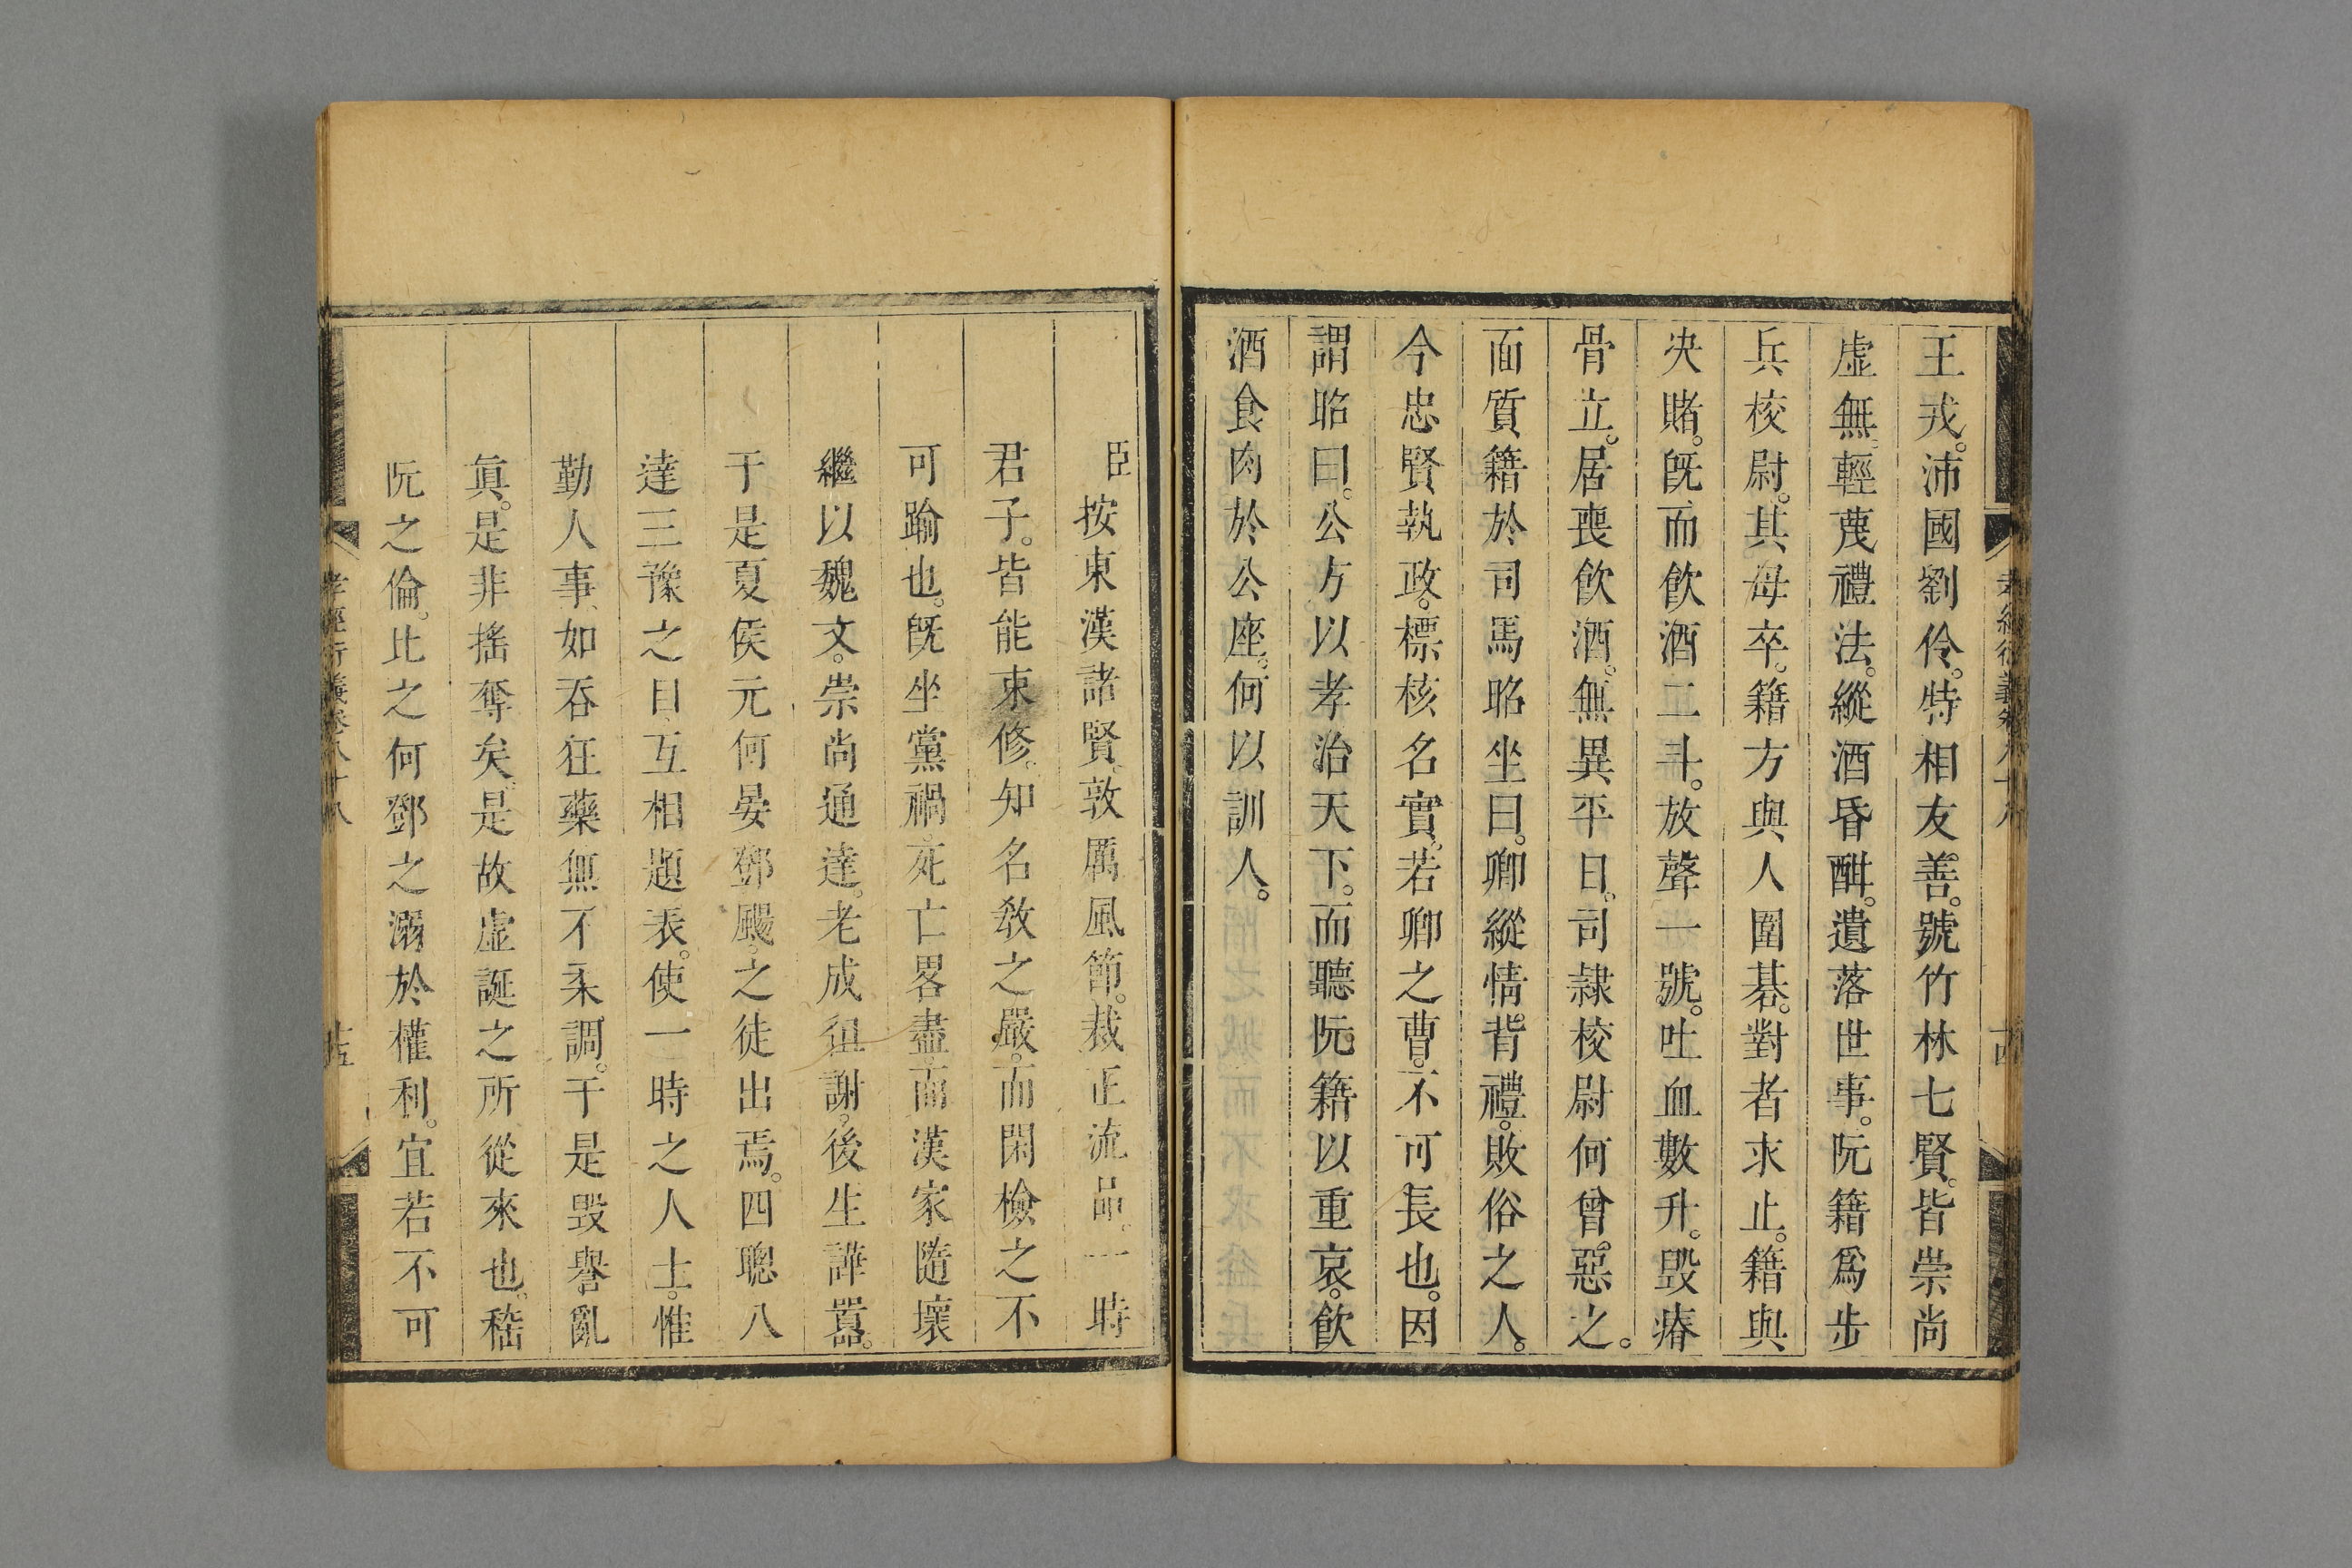 孝經衍義卷八十八
十四
王戎。沛國劉伶。特相友善。號竹林七賢。皆崇尚
虛無。輕蔑禮法。縱酒昏酣。遺落世事。阮籍爲步
兵校尉。其母卒。籍方與人圍碁。對者求止。籍與
决賭。旣而飮酒二斗。放聲一號。吐血數升。毁瘠
骨立。居喪飮酒。無異平日。司隷校尉何曾。惡之。
面質籍於司馬昭坐曰。卿縱情背禮。敗俗之人。
今忠賢執政。標核名實。若卿之曹。不可長也。因
謂昭曰。公方以孝治天下。而聽阮籍以重哀。飮
酒食肉於公座。何以訓人。
臣按東漢諸賢。敦厲風節。裁正流品。一時
君子。皆能束修。知名敎之嚴。而閑檢之不
可踰也。旣坐黨禍。死亡畧盡。而漢家隨壞
繼以魏文。崇尚通達。老成徂謝。後生譁囂。
于是夏侯元何晏鄧颺。之徒出焉。四聰八
達三豫之目。互相題表。使一時之人士。惟
勤人事。如吞狂藥無不柔調。于是毁譽亂
眞。是非搖奪矣。是故虛誕之所從來也。嵇
阮之倫。比之何鄧之溺於權利。宜若不可
孝經衍義卷八十八
十五